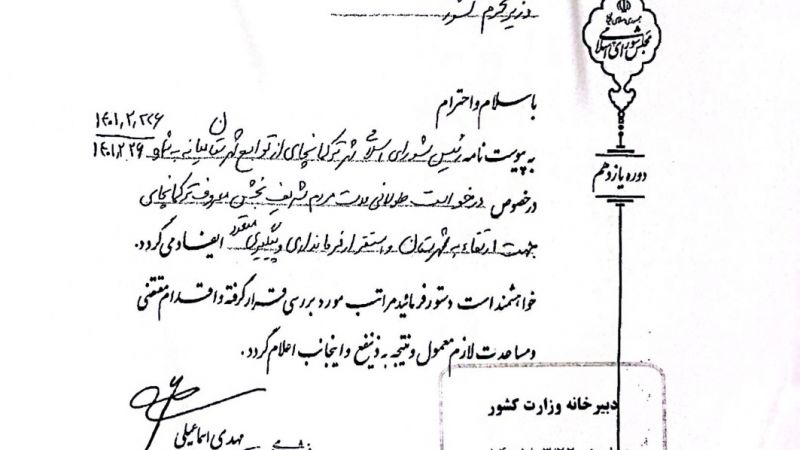 وزیر محترم کشور
جمهوری اسلامی ایران
مجلس شورای اسلامی
دوره یازدهم
با سلام و احترام
۱۴۰۱,۲,۲۶
به پیوست نامه رئیس شورای اسلامی شهر ترکمانچای از توابع شهرستان میانه به شماره ۱۴۰۱۲۲۶
در خصوص درخواست طولانی مدت مردم شریف بخش معروف ترکمانچای
جهت ارتقاء به شهرستان و استقرار فرمانداری و پیگیری متعدد ایفاد می گردد.
خواهشمند است دستور فرمائید مراتب مورد بررسی قرار گرفته و اقدام مقتضی
و مساعدت لازم معمول و نتیجه به ذینفع و اینجانب اعلام گردد.
مهدی اسماعیلی
دبیرخانه وزارت کشور